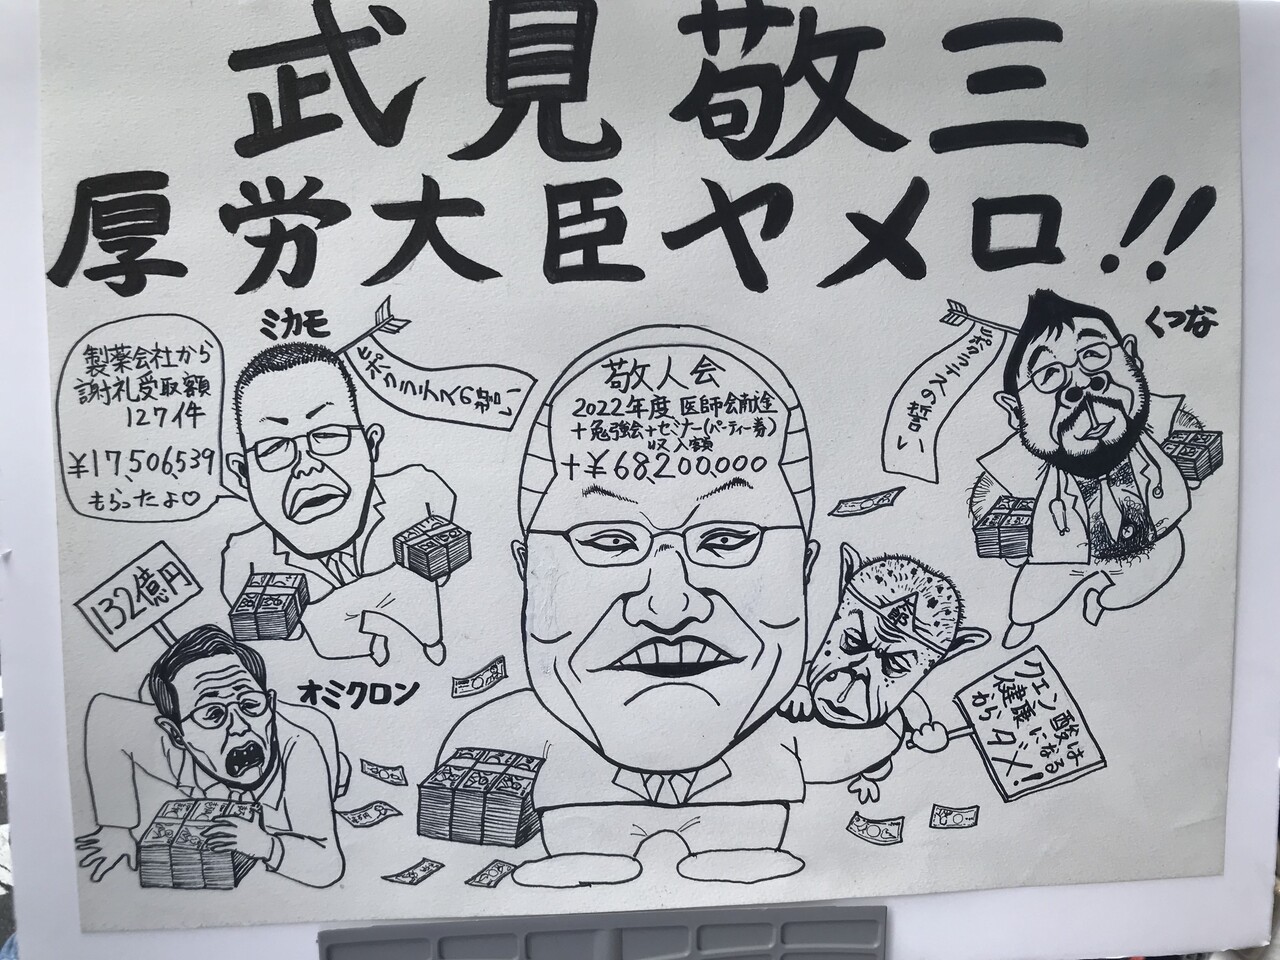 武見敬三
厚労大臣ヤメロ!!
ミカモ
製薬会社から
謝礼受取額
127件
¥17,506,539
もらったよ♡
ヒポクラテスの誓い
敬人会
2022年度 医師会献金
+勉強会+セミナー(パーティー券)
収入額
+¥68,200,000
ヒポクラテスの誓い
くつな
132億円
オミクロン
クエン酸は
健康になる
からダメ!